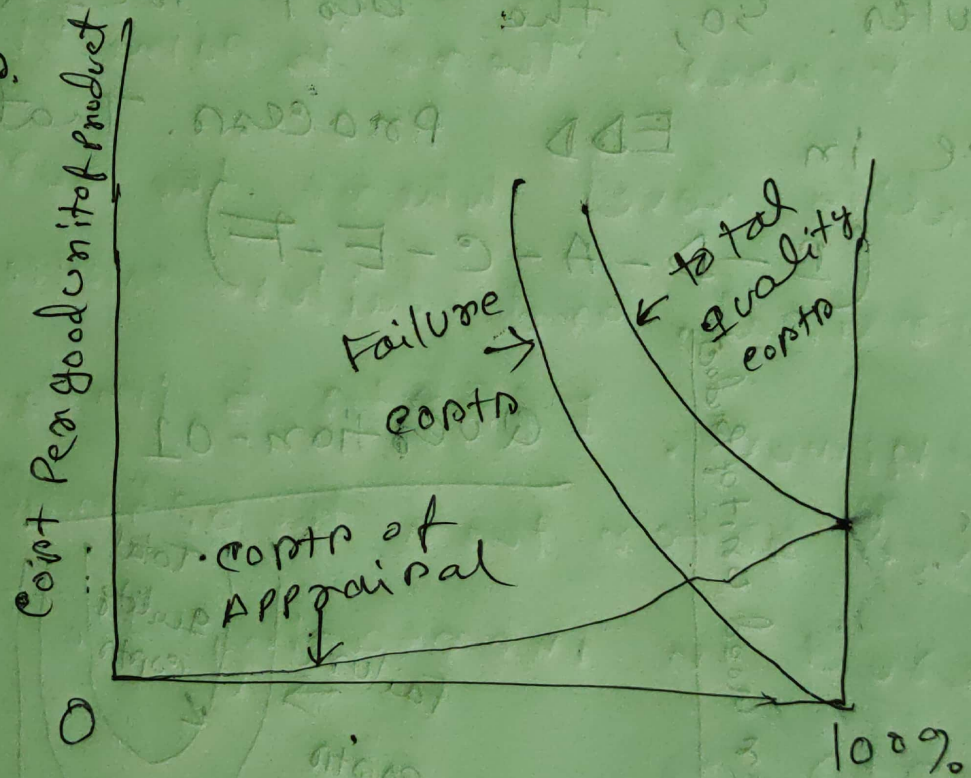 Cost Per good unit of product
Failure
costs
total
quality
costs
costs of
Appraisal
0
100%